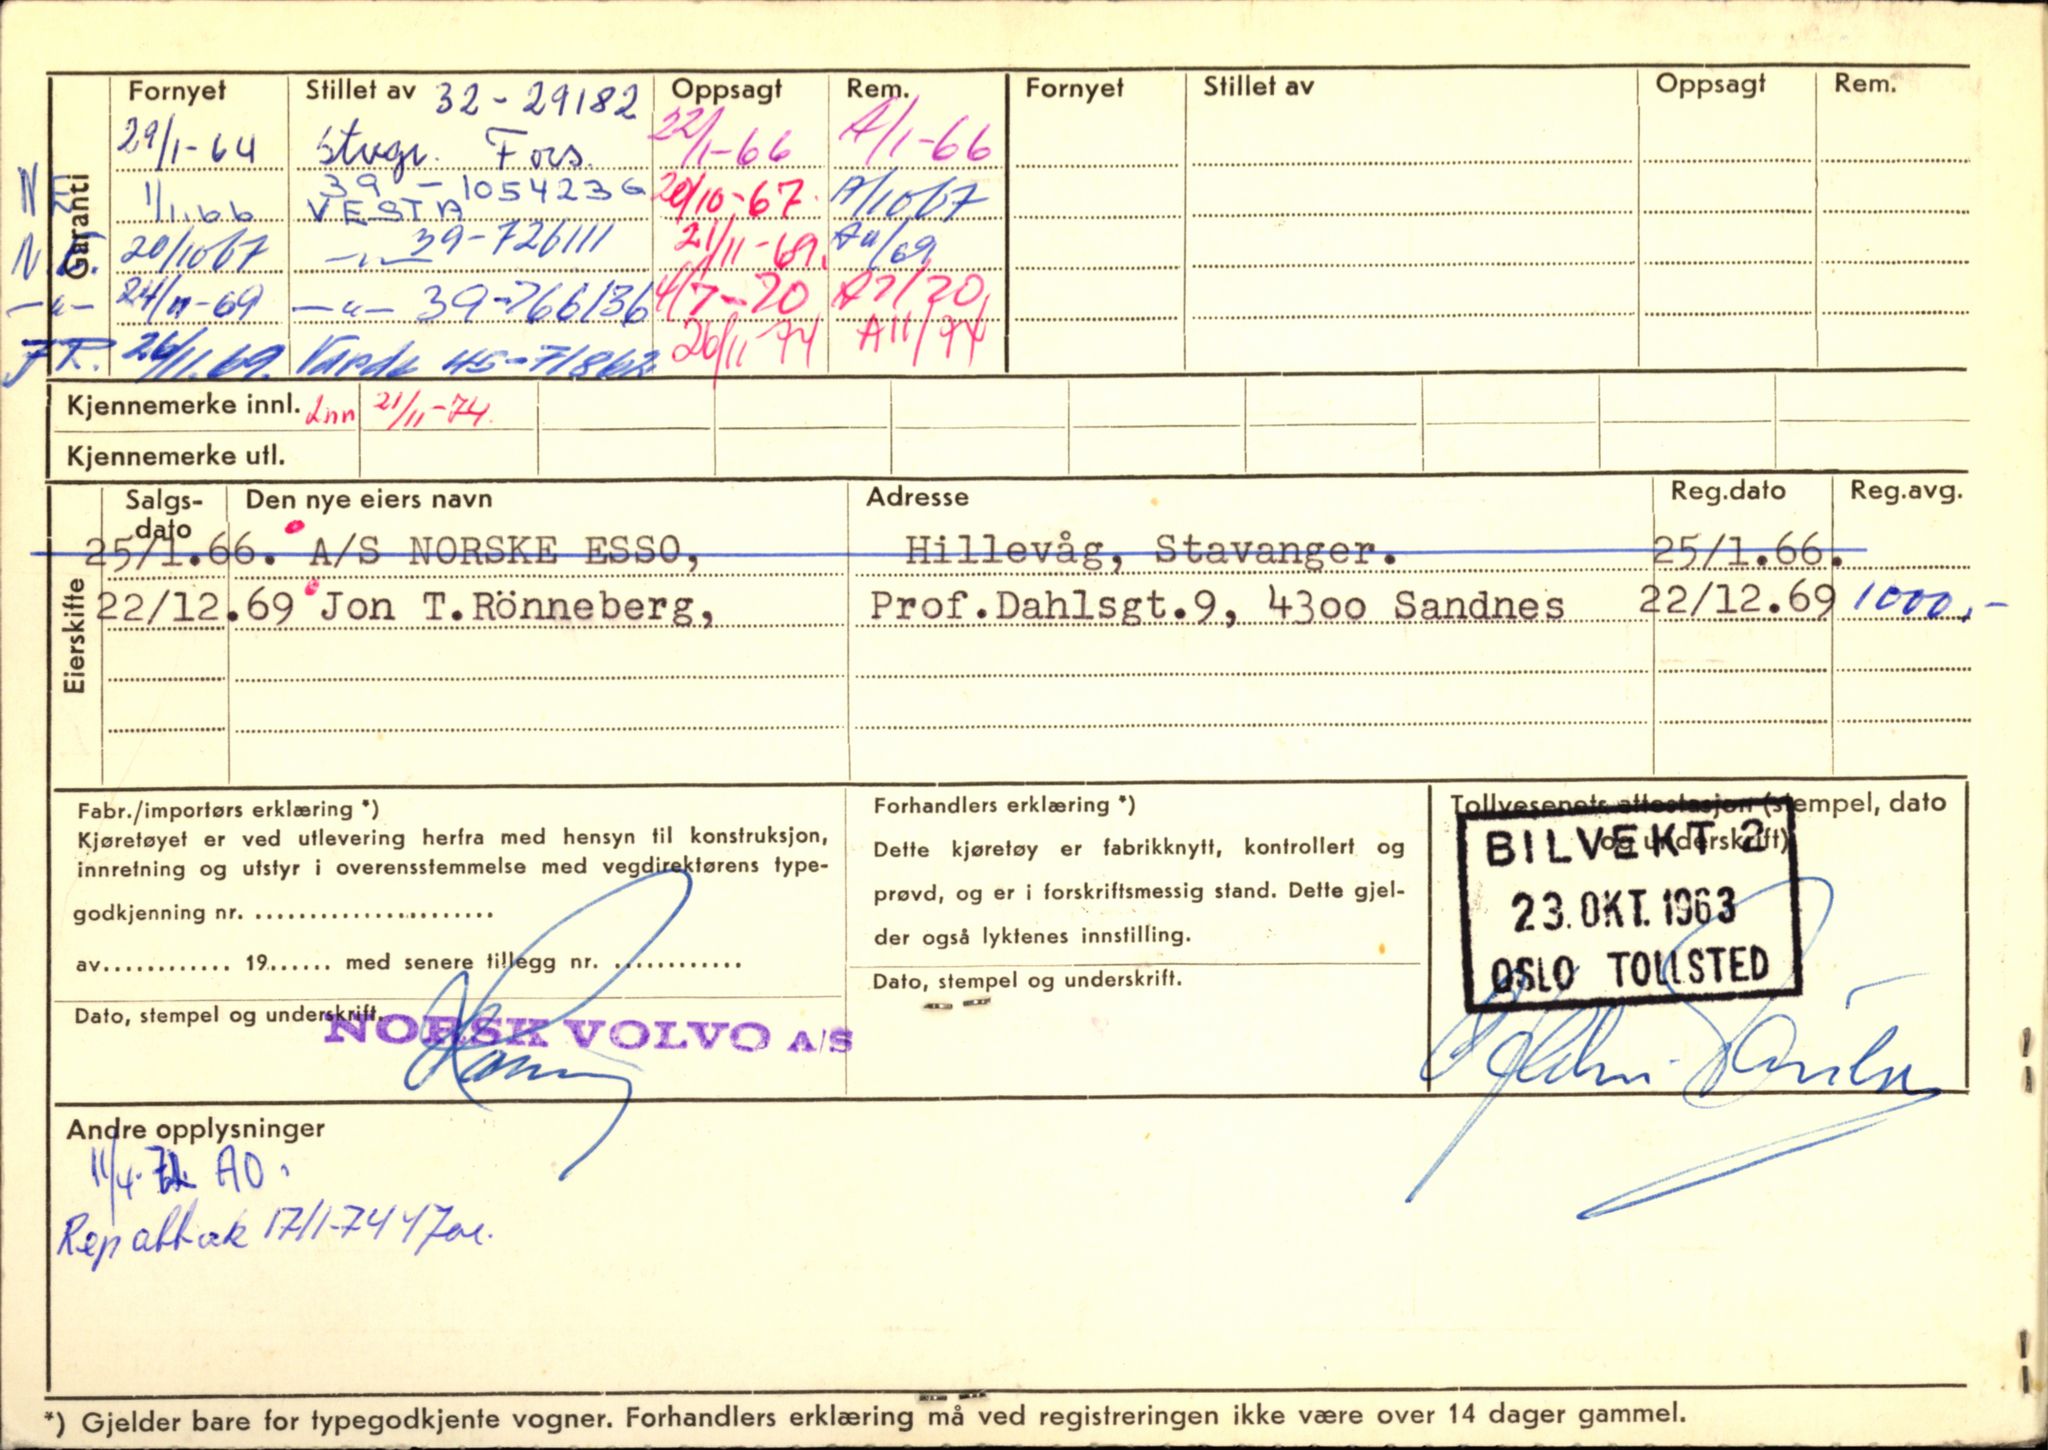 Garanti
Fornyet Stillet av 32-29182 Oppsagt Rem. Fornyet Stillet av Oppsagt Rem.
29/1-64 Stvgr. Fors. 22/1-66 A/1-66
N.E. 1/1.66 39-1054236 VESTA 20/10-67. A/10 67
N.E. 20/10 67 —"— 39-726111 21/11-69. A11/69
—"— 24/11-69 —"— 39-766136 4/7-70 A7/70
J.R. 26/11.69. Varde 45-71862 20/11 74 A11/74
Kjennemerke innl. Inn 21/11-74.
Kjennemerke utl.
Eierskifte
Salgs-dato Den nye eiers navn Adresse Reg.dato Reg.avg.
25/1.66. A/S NORSKE ESSO, Hillevåg, Stavanger. 25/1.66.
22/12.69 Jon T.Rönneberg, Prof.Dahlsgt.9, 4300 Sandnes 22/12.69 1000,-
Fabr./importørs erklæring *)
Kjøretøyet er ved utlevering herfra med hensyn til konstruksjon,
innretning og utstyr i overensstemmelse med vegdirektørens type-
godkjenning nr. ......................
av............ 19...... med senere tillegg nr. ............
Dato, stempel og underskrift.
NORSK VOLVO A/S
Forhandlers erklæring *)
Dette kjøretøy er fabrikknytt, kontrollert og
prøvd, og er i forskriftsmessig stand. Dette gjel-
der også lyktenes innstilling.
Dato, stempel og underskrift.
Tollvesenets attestasjon (stempel, dato
og underskrift)
BILVEKT 2
23. OKT. 1963
OSLO TOLLSTED
Andre opplysninger
11/4. AO.
Rep attest 17/1-74
*) Gjelder bare for typegodkjente vogner. Forhandlers erklæring må ved registreringen ikke være over 14 dager gammel.